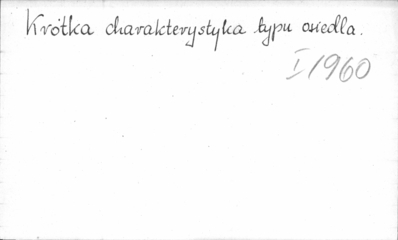 Krótka charakterystyka typu osiedla.
I/1960